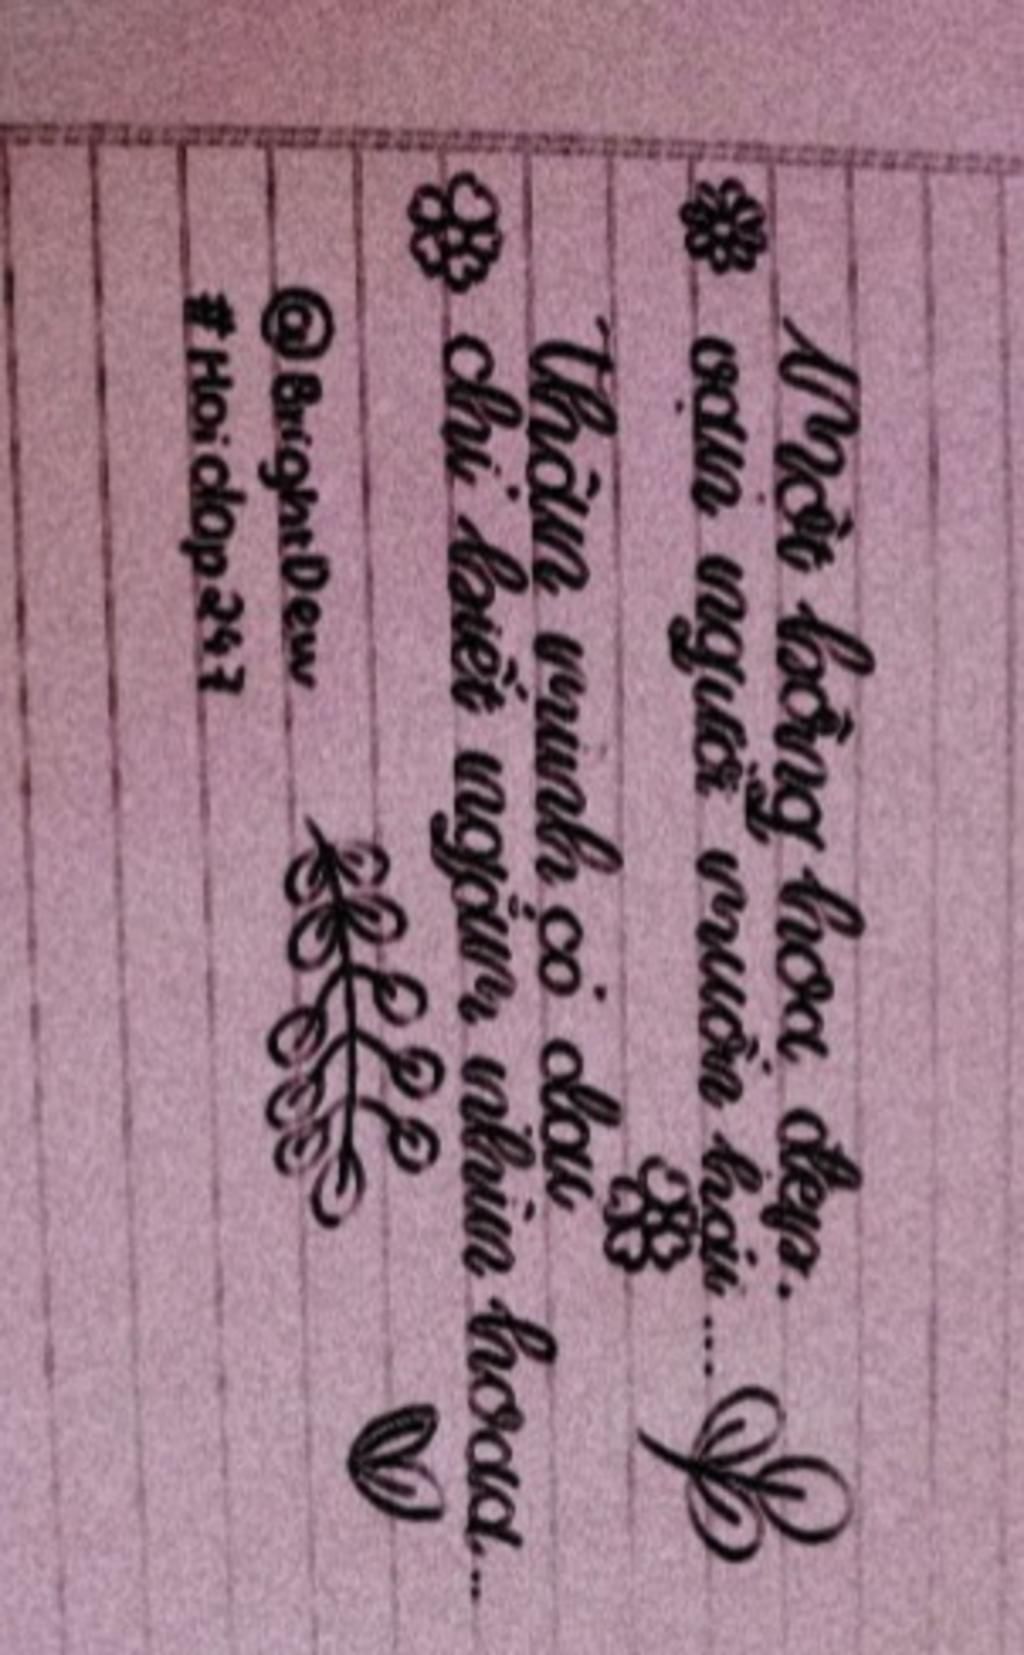 Một bông hoa đẹp.
vạn người muốn hái...
Thân mình cỏ dại
chỉ biết ngắm nhìn hoaa...
@BrightDew
#Hoidap247